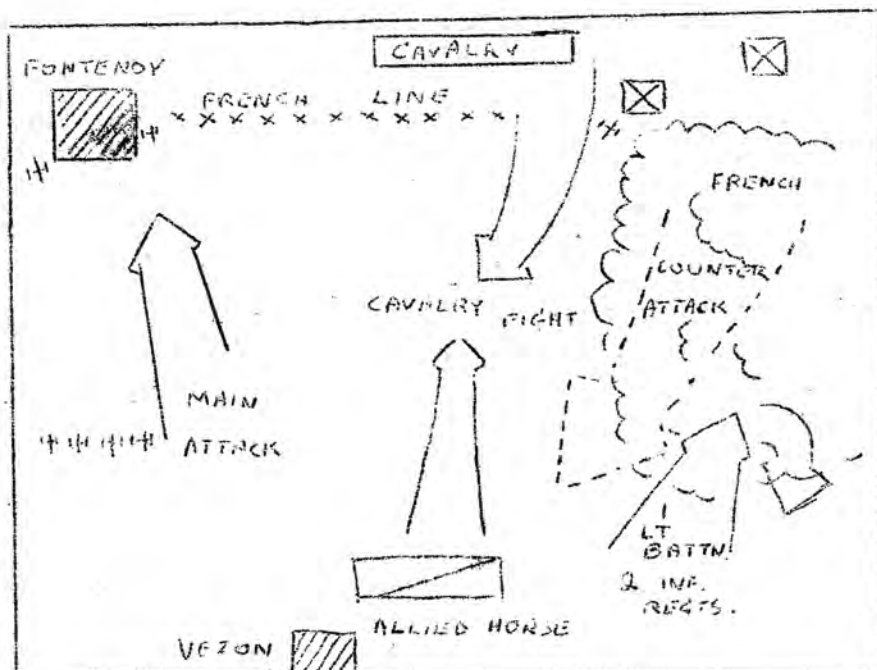 CAVALRY
FONTENOY
FRENCH LINE
FRENCH
COUNTER
ATTACK
CAVALRY FIGHT
MAIN
ATTACK
LT
BATTN
2 INF.
REGTS.
ALLIED HORSE
VEZON